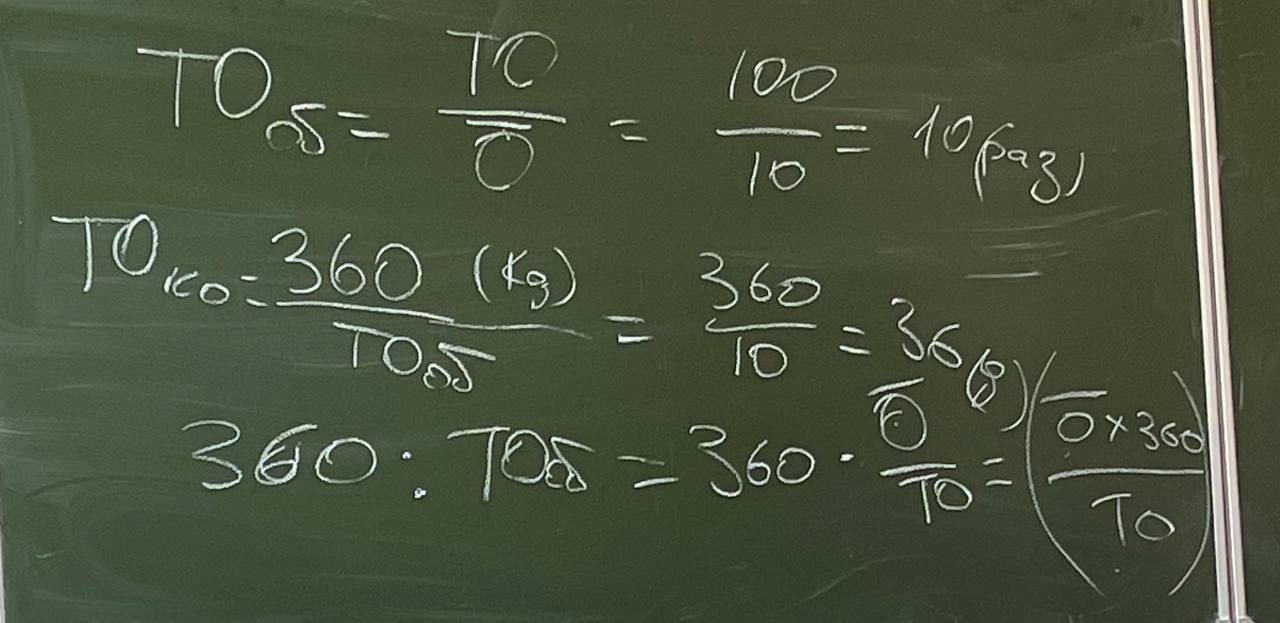 ТО об = ТО / О̅ = 100 / 10 = 10 (раз)
ТО ко = 360 (Kg) / ТО об = 360 / 10 = 36 (g)
360 : ТОоб = 360 · О̅ / ТО = (О̅ × 360 / ТО)